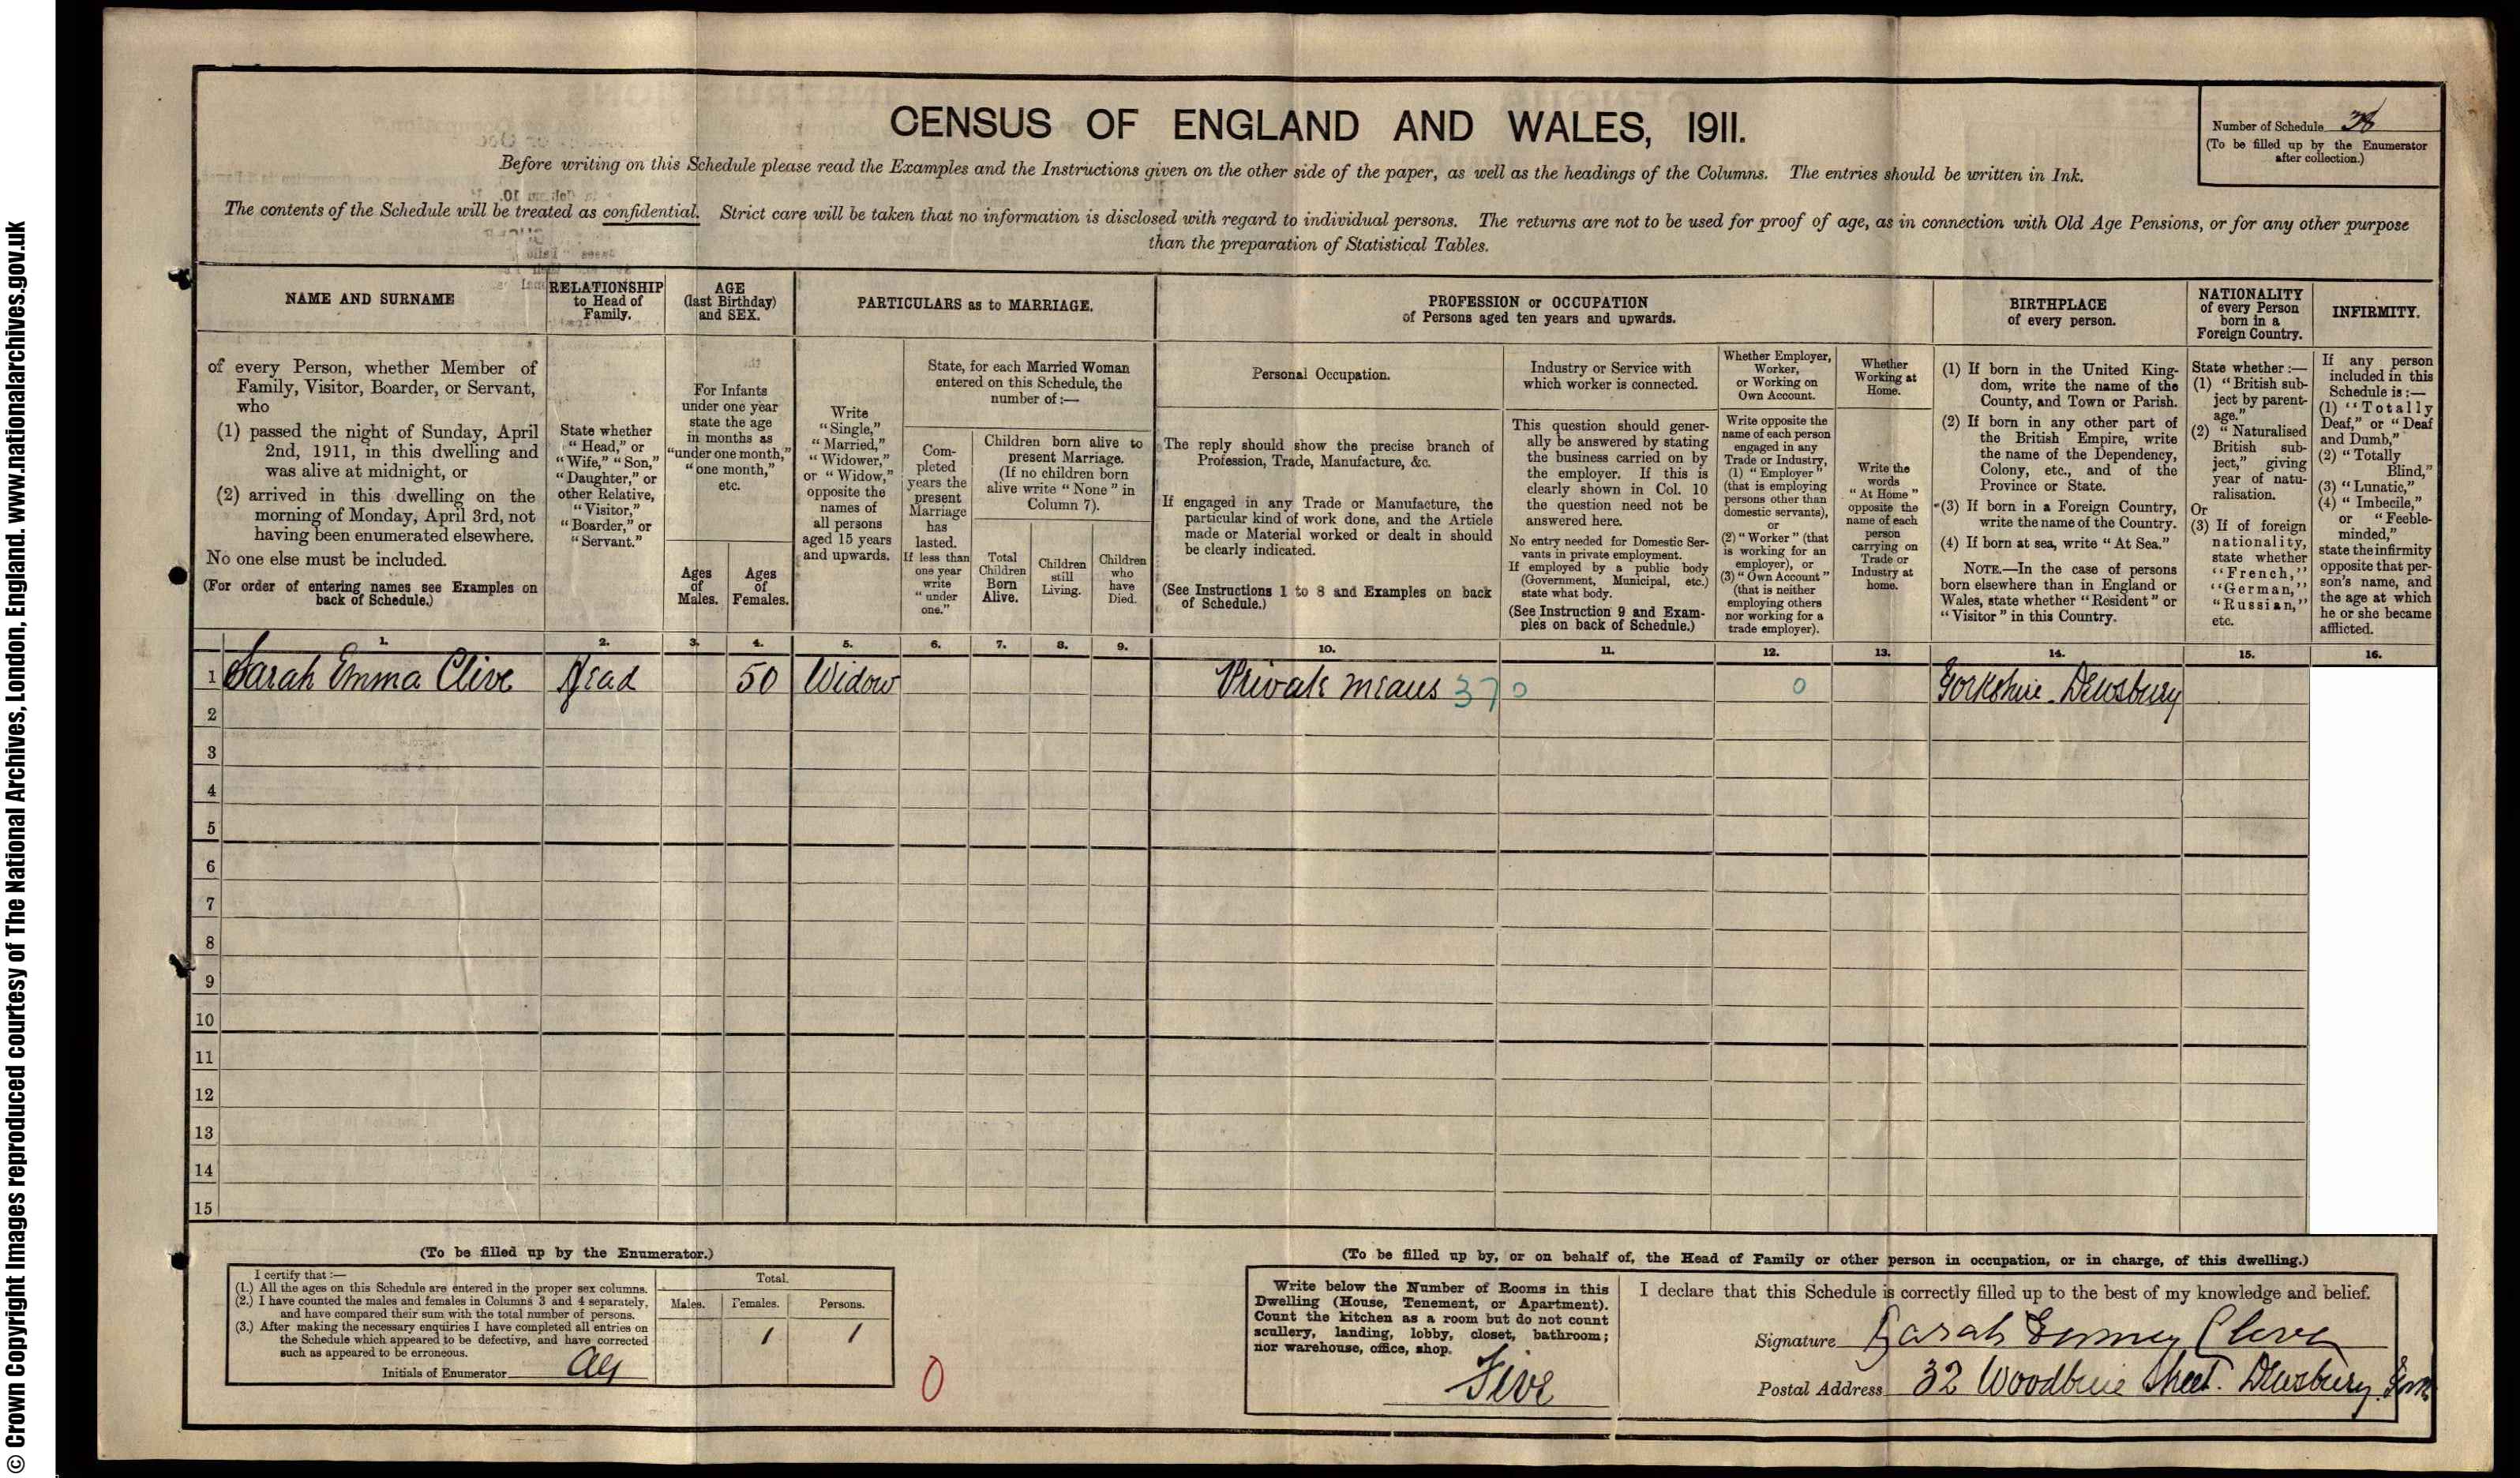 © Crown Copyright Images reproduced courtesy of The National Archives, London, England. www.nationalarchives.gov.uk
CENSUS OF ENGLAND AND WALES, 1911.
Number of Schedule 38
(To be filled up by the Enumerator after collection.)
Before writing on this Schedule please read the Examples and the Instructions given on the other side of the paper, as well as the headings of the Columns. The entries should be written in Ink.
The contents of the Schedule will be treated as confidential. Strict care will be taken that no information is disclosed with regard to individual persons. The returns are not to be used for proof of age, as in connection with Old Age Pensions, or for any other purpose
than the preparation of Statistical Tables.
NAME AND SURNAME
of every Person, whether Member of
Family, Visitor, Boarder, or Servant,
who
(1) passed the night of Sunday, April
2nd, 1911, in this dwelling and
was alive at midnight, or
(2) arrived in this dwelling on the
morning of Monday, April 3rd, not
having been enumerated elsewhere.
No one else must be included.
(For order of entering names see Examples on
back of Schedule.)
RELATIONSHIP
to Head of
Family.
State whether
"Head," or
"Wife," "Son,"
"Daughter," or
other Relative,
"Visitor,"
"Boarder," or
"Servant."
AGE
(last Birthday)
and SEX.
For Infants
under one year
state the age
in months as
"under one month,"
"one month,"
etc.
Ages
of
Males.
Ages
of
Females.
PARTICULARS as to MARRIAGE.
Write
"Single,"
"Married,"
"Widower,"
or "Widow,"
opposite the
names of
all persons
aged 15 years
and upwards.
State, for each Married Woman
entered on this Schedule, the
number of:—
Com-
pleted
years the
present
Marriage
has
lasted.
If less than
one year
write
"under
one."
Children born alive to
present Marriage.
(If no children born
alive write "None" in
Column 7).
Total
Children
Born
Alive.
Children
still
Living.
Children
who
have
Died.
PROFESSION or OCCUPATION
of Persons aged ten years and upwards.
Personal Occupation.
The reply should show the precise branch of
Profession, Trade, Manufacture, &c.
If engaged in any Trade or Manufacture, the
particular kind of work done, and the Article
made or Material worked or dealt in should
be clearly indicated.
(See Instructions 1 to 8 and Examples on back
of Schedule.)
Industry or Service with
which worker is connected.
This question should gener-
ally be answered by stating
the business carried on by
the employer. If this is
clearly shown in Col. 10
the question need not be
answered here.
No entry needed for Domestic Ser-
vants in private employment.
If employed by a public body
(Government, Municipal, etc.)
state what body.
(See Instruction 9 and Exam-
ples on back of Schedule.)
Whether Employer,
Worker,
or Working on
Own Account.
Write opposite the
name of each person
engaged in any
Trade or Industry,
(1) "Employer"
(that is employing
persons other than
domestic servants),
or
(2) "Worker" (that
is working for an
employer), or
(3) "Own Account"
(that is neither
employing others
nor working for a
trade employer).
Whether
Working at
Home.
Write the
words
"At Home"
opposite the
name of each
person
carrying on
Trade or
Industry at
home.
BIRTHPLACE
of every person.
(1) If born in the United King-
dom, write the name of the
County, and Town or Parish.
(2) If born in any other part of
the British Empire, write
the name of the Dependency,
Colony, etc., and of the
Province or State.
(3) If born in a Foreign Country,
write the name of the Country.
(4) If born at sea, write "At Sea."
NOTE.—In the case of persons
born elsewhere than in England or
Wales, state whether "Resident" or
"Visitor" in this Country.
NATIONALITY
of every Person
born in a
Foreign Country.
State whether:—
(1) "British sub-
ject by parent-
age."
(2) "Naturalised
British sub-
ject," giving
year of natu-
ralisation.
Or
(3) If of foreign
nationality,
state whether
"French,"
"German,"
"Russian,"
etc.
INFIRMITY.
If any person
included in this
Schedule is:—
(1) "Totally
Deaf," or "Deaf
and Dumb,"
(2) "Totally
Blind,"
(3) "Lunatic,"
(4) "Imbecile,"
or "Feeble-
minded,"
state the infirmity
opposite that per-
son's name, and
the age at which
he or she became
afflicted.
1. 2. 3. 4. 5. 6. 7. 8. 9. 10. 11. 12. 13. 14. 15. 16.
1 Sarah Emma Clive Head 50 Widow Private means 370 0 Yorkshire Dewsbury
2
3
4
5
6
7
8
9
10
11
12
13
14
15
(To be filled up by the Enumerator.)
I certify that:—
(1.) All the ages on this Schedule are entered in the proper sex columns.
(2.) I have counted the males and females in Columns 3 and 4 separately,
and have compared their sum with the total number of persons.
(3.) After making the necessary enquiries I have completed all entries on
the Schedule which appeared to be defective, and have corrected
such as appeared to be erroneous.
Initials of Enumerator
Total.
Males. Females. Persons.
1 1
0
(To be filled up by, or on behalf of, the Head of Family or other person in occupation, or in charge, of this dwelling.)
Write below the Number of Rooms in this
Dwelling (House, Tenement, or Apartment).
Count the kitchen as a room but do not count
scullery, landing, lobby, closet, bathroom;
nor warehouse, office, shop.
Five
I declare that this Schedule is correctly filled up to the best of my knowledge and belief.
Signature Sarah
Postal Address 32 Woodbine Street. Dewsbury